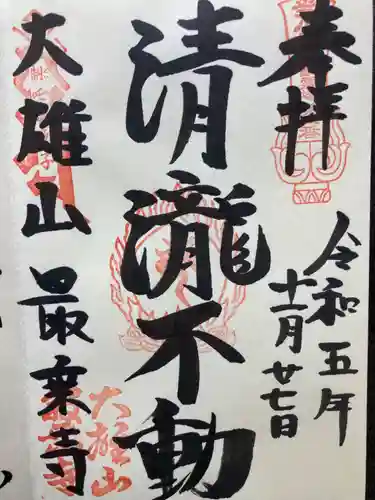 奉拝
令和五年
十一月廿七日
清瀧不動
大雄山
最乗寺
大雄山